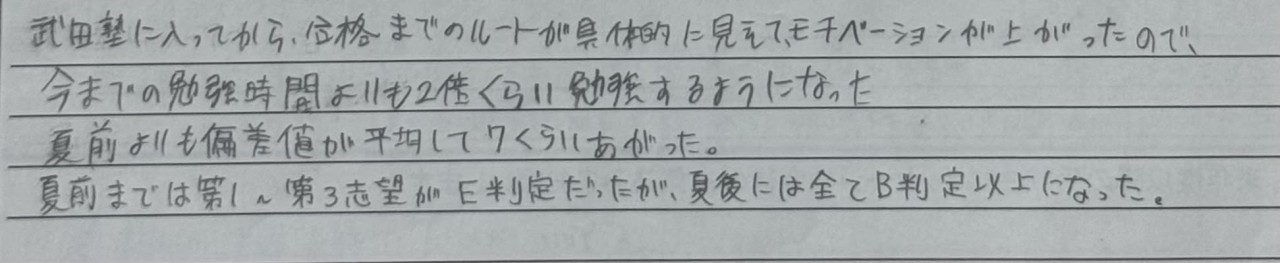 武田塾に入ってから、合格までのルートが具体的に見えて、モチベーションが上がったので、
今までの勉強時間よりも2倍くらい勉強するようになった
夏前よりも偏差値が平均して7くらいあがった。
夏前までは第1~第3志望がE判定だったが、夏後には全てB判定以上になった。